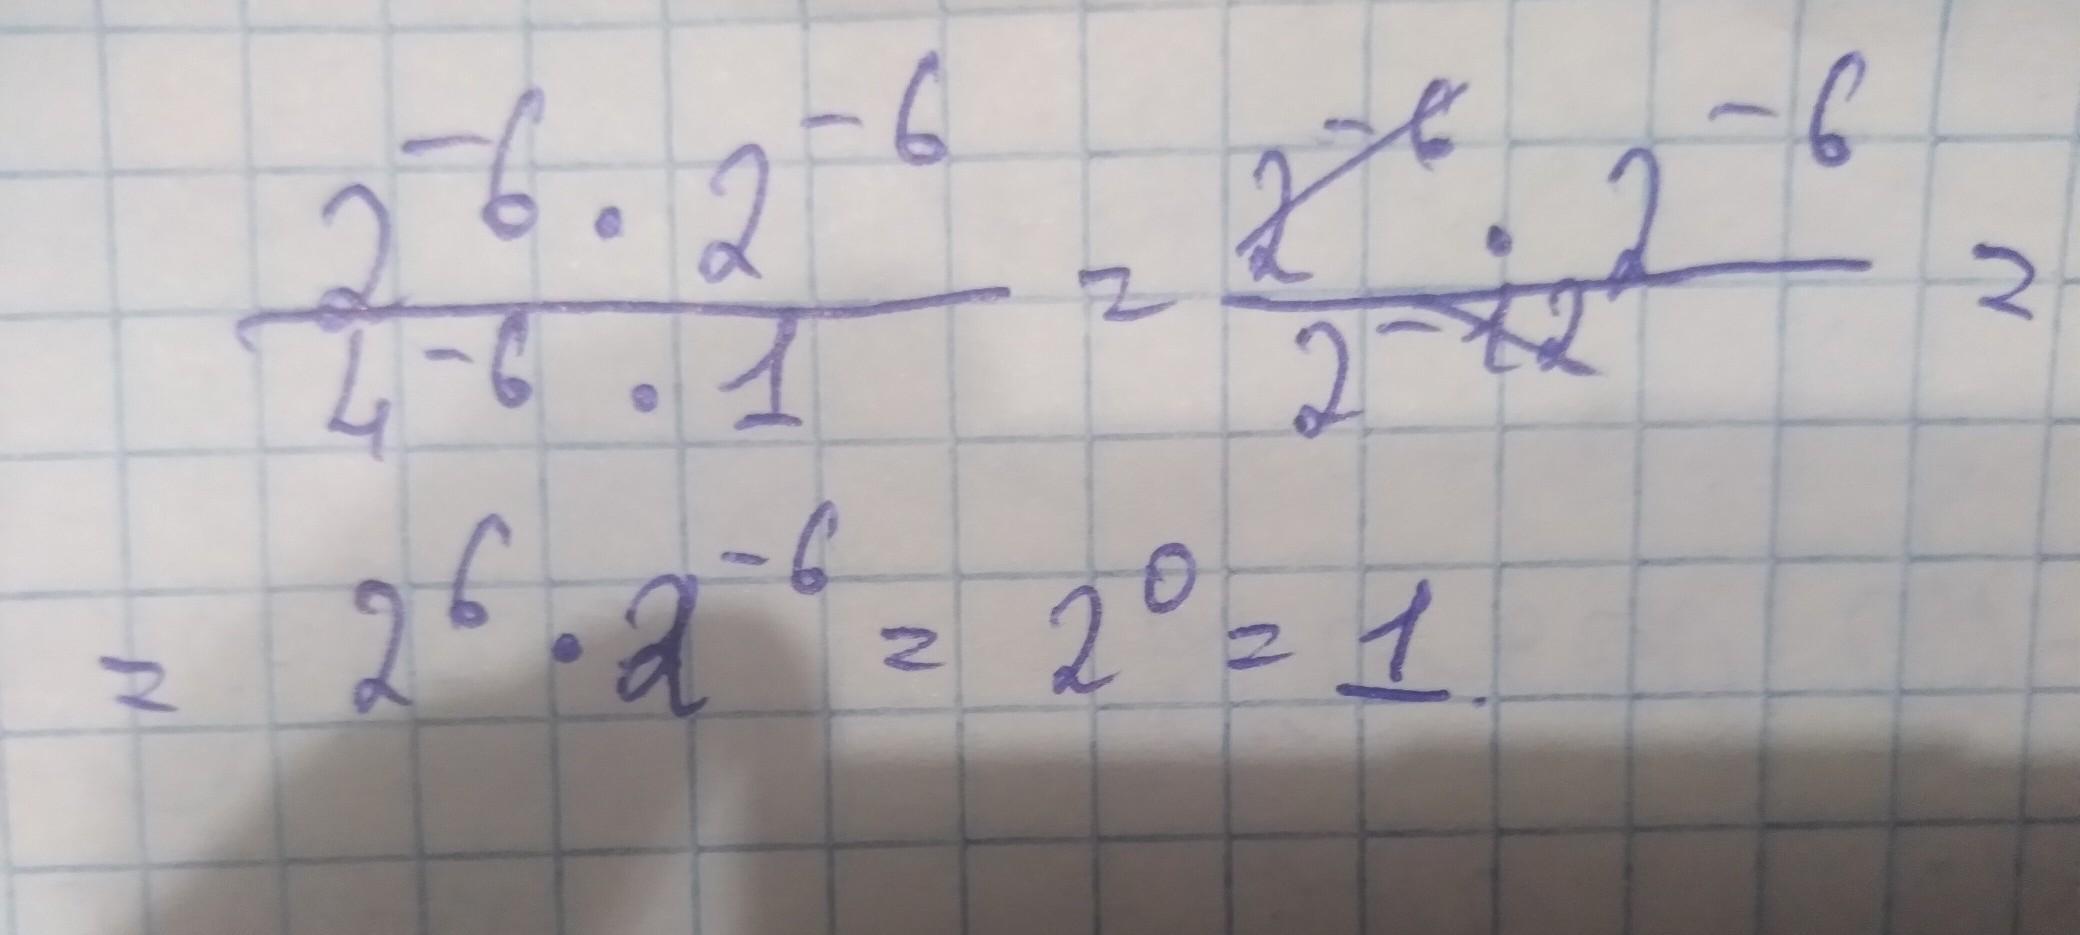 2^-6 · 2^-6 / 4^-6 · 1 = 2^-6 · 2^-6 / 2^-12 =
= 2^6 · 2^-6 = 2^0 = 1.